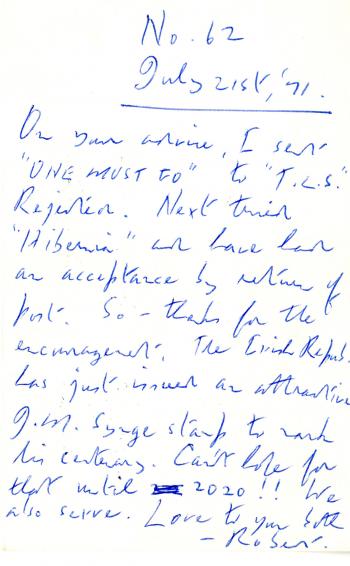 No. 62
July 21st, '71.
On your advice, I sent
"ONE MUST GO" to "T.L.S."
Rejected. Next tried
"Hibernia" and have had
an acceptance by return of
post. So - thanks for the
encouragement. The Irish Repub.
has just issued an attractive
J.M. Synge stamp to mark
his centenary. Can't hope for
that until 2020!! We
also serve. Love to you both
- Robert.